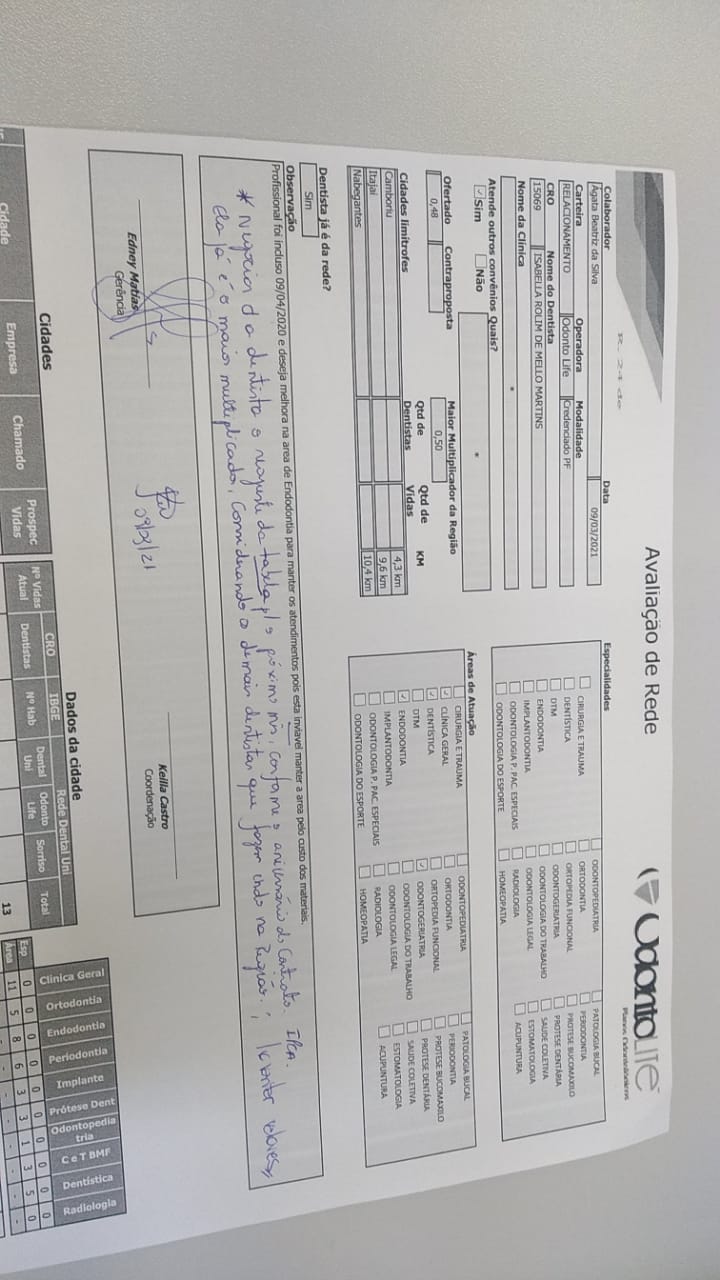 Avaliação de Rede
OdontoLIFE
Planos Odontológicos
Colaborador
Data
Ágata Beatriz da Silva
09/03/2021
Carteira
Operadora
Modalidade
RELACIONAMENTO
Odonto Life
Credenciado PF
CRO
Nome do Dentista
15069
ISABELLA ROLIM DE MELLO MARTINS
Nome da Clínica
*
Atende outros convênios Quais?
✓ Sim
Não
*
Ofertado
Contraproposta
Maior Multiplicador da Região
0,48
0,50
Cidades limítrofes
Qtd de Dentistas
Qtd de Vidas
KM
Camboriu
4,3 km
Itajai
9,6 km
Nabegantes
10,4 km
Especialidades
CIRURGIA E TRAUMA
DENTÍSTICA
DTM
ENDODONTIA
IMPLANTODONTIA
ODONTOLOGIA P. PAC. ESPECIAIS
ODONTOLOGIA DO ESPORTE
ODONTOPEDIATRIA
ORTODONTIA
ORTOPEDIA FUNCIONAL
ODONTOGERIATRIA
ODONTOLOGIA DO TRABALHO
ODONTOLOGIA LEGAL
RADIOLOGIA
HOMEOPATIA
PATOLOGIA BUCAL
PERIODONTIA
PROTESE BUCOMAXILO
PROTESE DENTÁRIA
SAUDE COLETIVA
ESTOMATOLOGIA
ACUPUNTURA
Áreas de Atuação
CIRURGIA E TRAUMA
✓ CLÍNICA GERAL
✓ DENTÍSTICA
DTM
✓ ENDODONTIA
IMPLANTODONTIA
ODONTOLOGIA P. PAC. ESPECIAIS
ODONTOLOGIA DO ESPORTE
ODONTOPEDIATRIA
ORTODONTIA
ORTOPEDIA FUNCIONAL
✓ ODONTOGERIATRIA
ODONTOLOGIA DO TRABALHO
ODONTOLOGIA LEGAL
RADIOLOGIA
HOMEOPATIA
PATOLOGIA BUCAL
PERIODONTIA
PROTESE BUCOMAXILO
PROTESE DENTÁRIA
SAUDE COLETIVA
ESTOMATOLOGIA
ACUPUNTURA
Dentista já é da rede?
Sim
Observação
Profissional foi incluso 09/04/2020 e deseja melhora na area de Endodontia para manter os atendimentos pois esta inviavel manter a area pelo custo dos materiais.
* Negociar da dentista o reajuste da tabela p/ o próximo mês, conforme o aniversário do contrato. IPCA.
ela já é o maior multiplicador, considerando o demais dentistas que fazem endo na Região. manter valores
Edney Matias
Gerência
09/03/21
Keilla Castro
Coordenação
Cidades
Cidade
Empresa
Chamado
Prospec Vidas
Dados da cidade
CRO
IBGE
Rede Dental Uni
Nº Vidas Atual
Dentistas
Nº Hab
Dental Uni
Odonto Life
Sorriso
Total
13
Clinica Geral
Ortodontia
Endodontia
Periodontia
Implante
Prótese Dent
Odontopediatria
C e T BMF
Dentística
Radiologia
Esp 0 0 0 0 0 0 0 0 0 0
Área 11 5 8 6 3 3 1 3 5 0